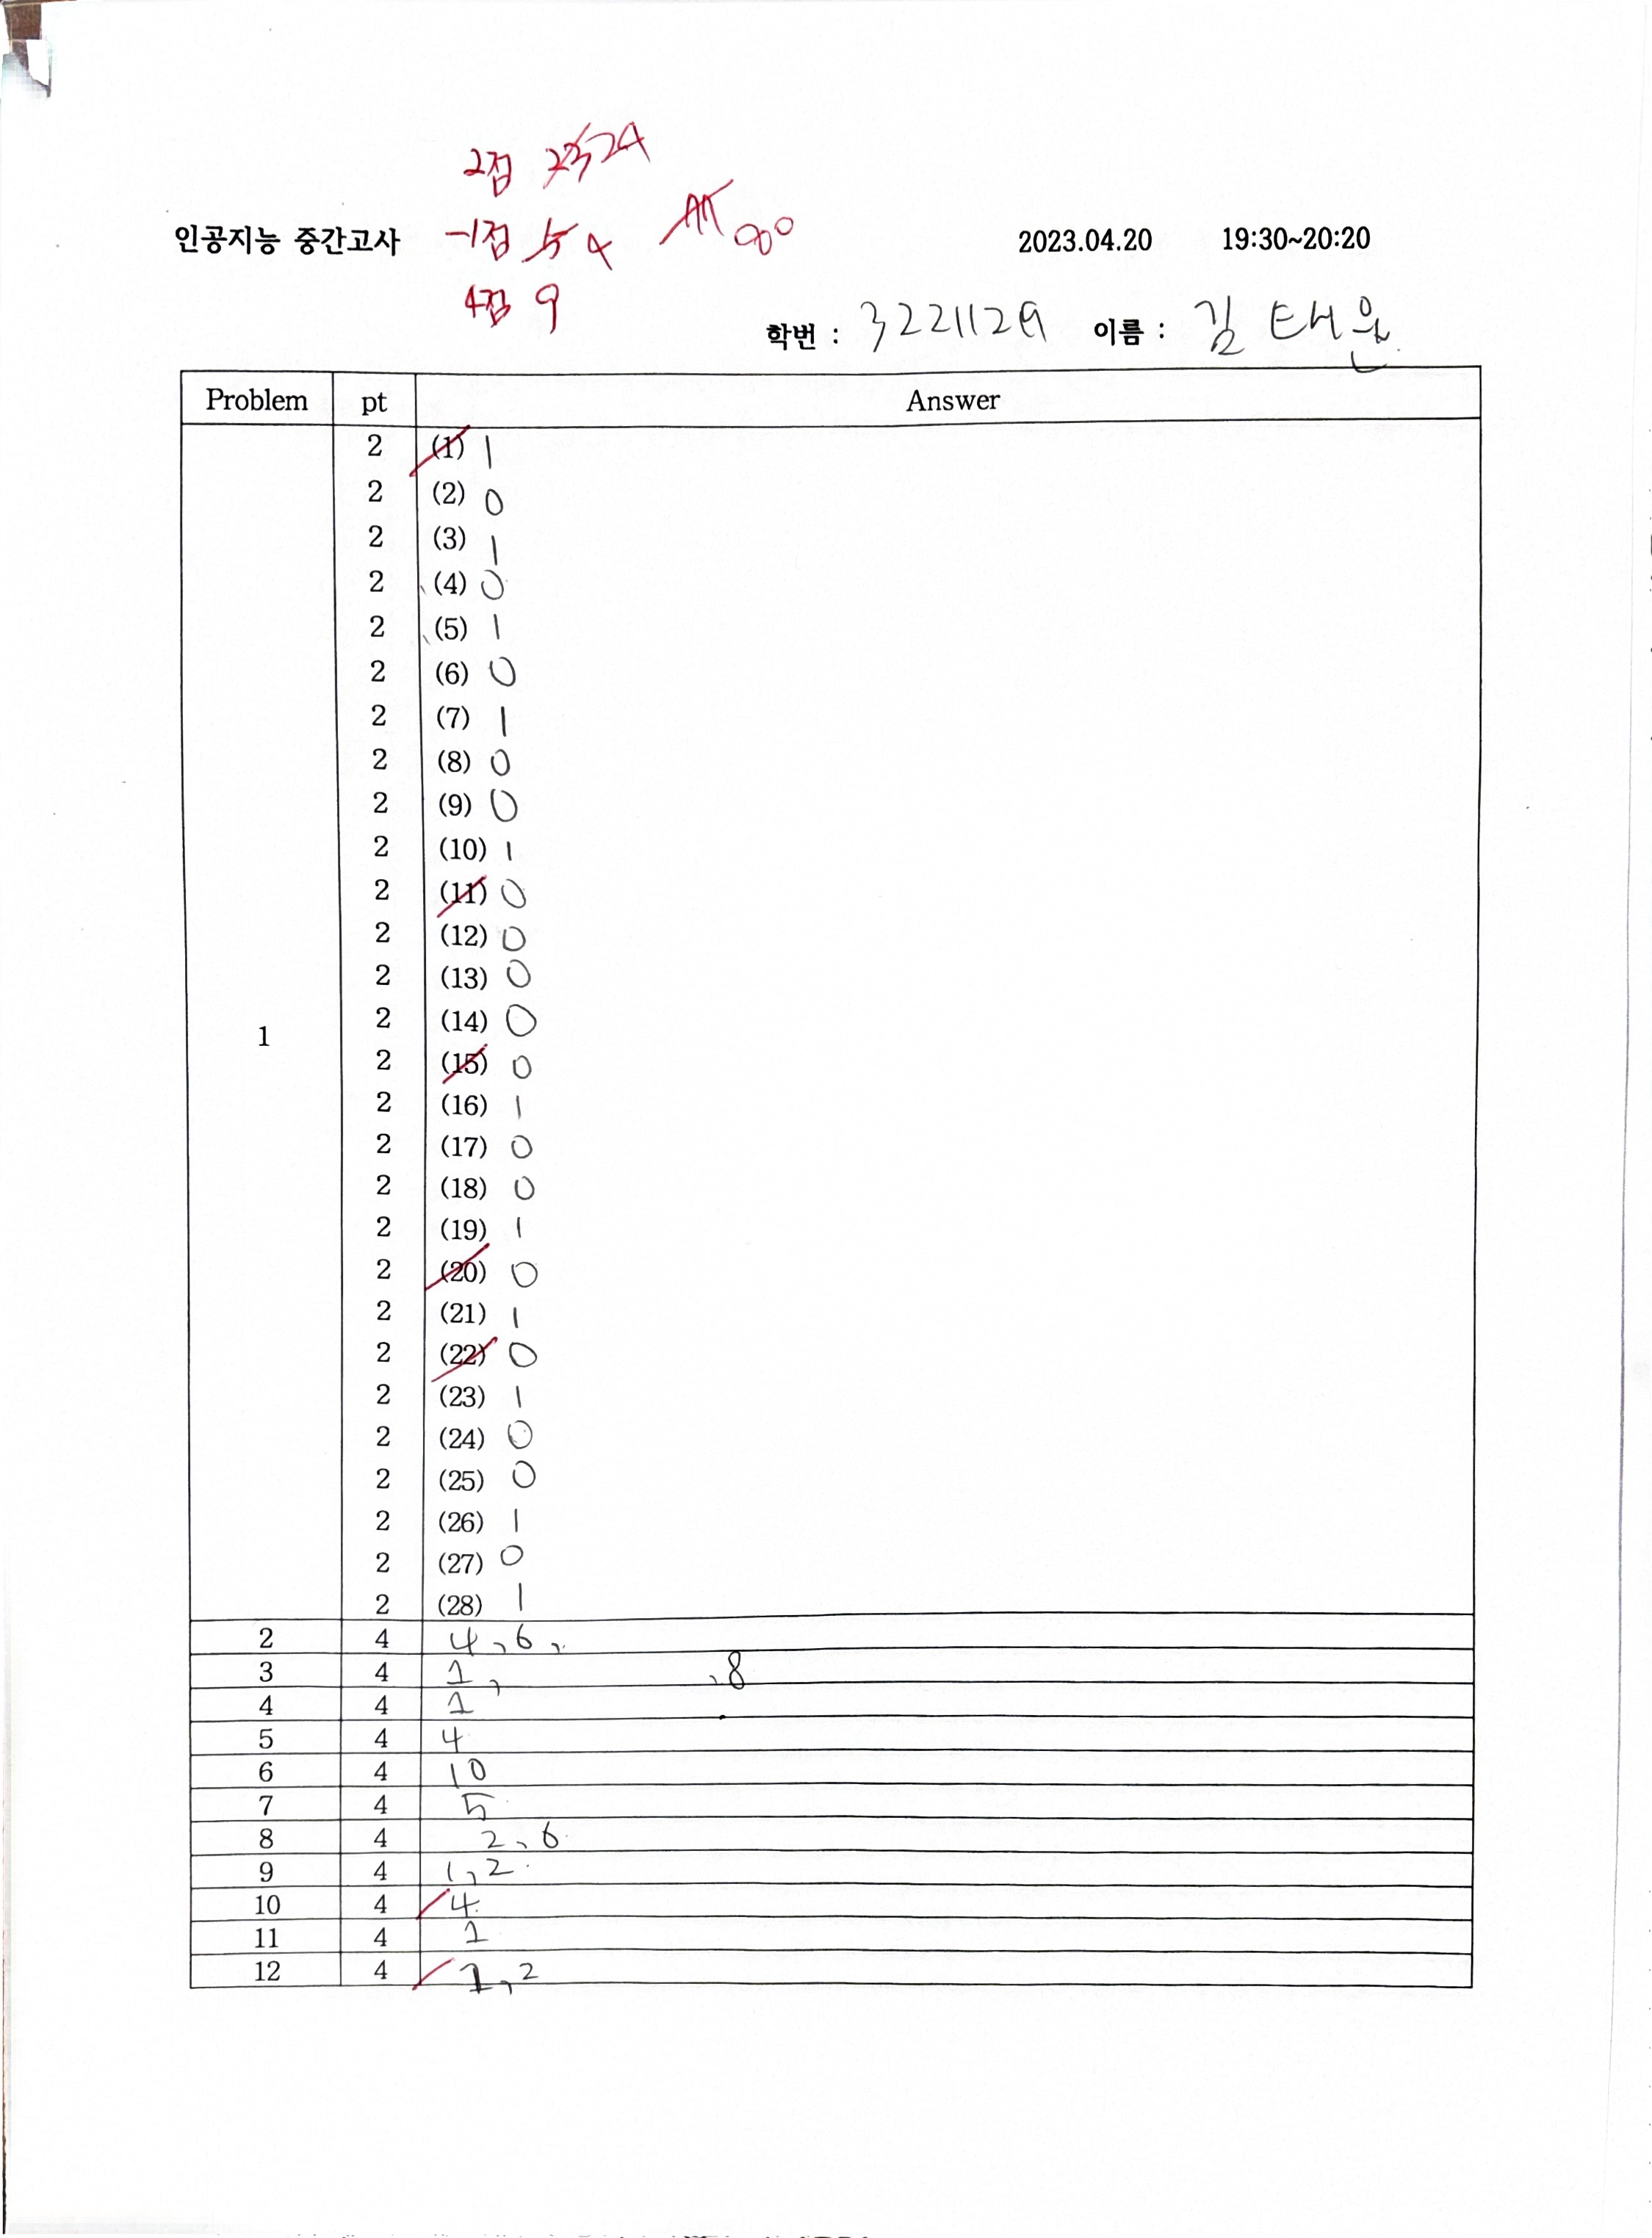 2점 23 24
인공지능 중간고사 -1점 5 4 77 80 2023.04.20 19:30~20:20
4점 9
학번 : 32211129 이름 : 김태완
Problem pt Answer
1
2 (1) 1
2 (2) 0
2 (3) 1
2 (4) 0
2 (5) 1
2 (6) 0
2 (7) 1
2 (8) 0
2 (9) 0
2 (10) 1
2 (11) 0
2 (12) 0
2 (13) 0
2 (14) 0
2 (15) 0
2 (16) 1
2 (17) 0
2 (18) 0
2 (19) 1
2 (20) 0
2 (21) 1
2 (22) 0
2 (23) 1
2 (24) 0
2 (25) 0
2 (26) 1
2 (27) 0
2 (28) 1
2 4 4, 6,
3 4 1, , 8
4 4 1
5 4 4
6 4 10
7 4 5
8 4 2, 6
9 4 1, 2
10 4 4
11 4 1
12 4 1, 2